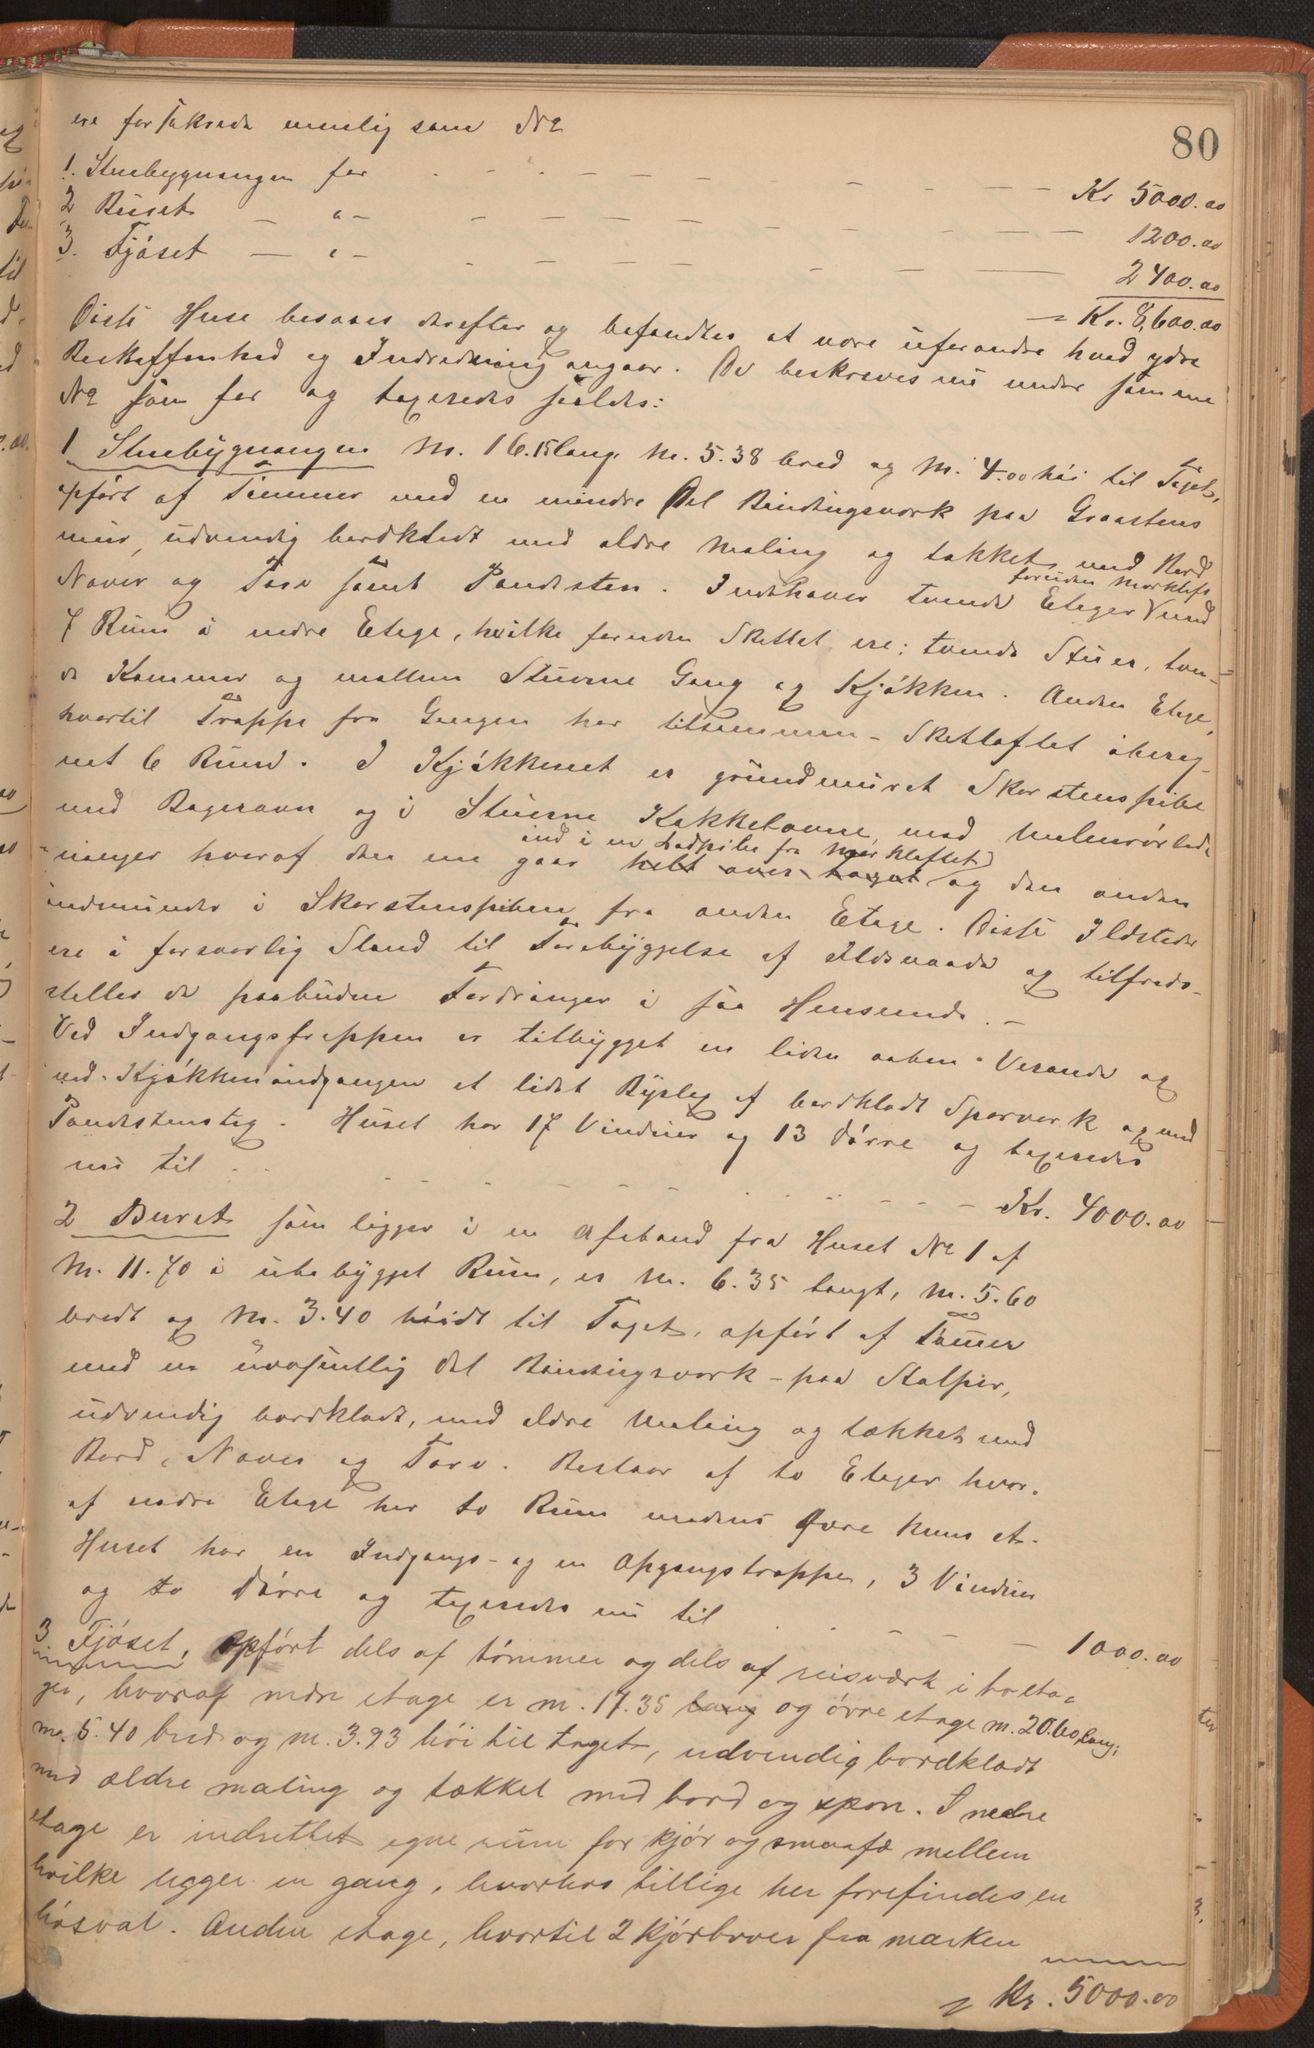 80
ere forsikrede nemlig som No
1. Stuebygningen for - - - - - - - Kr 5000.00
2 Buret - " - - - - - - - 1200.00
3. Fjøset - " - - - - - - 2400.00
= Kr. 8,600.00
Disse Huse besaaes derefter og befandtes at være uforandre hvad ydre
Beskaffenhed og Indredning angaar. De beskreves nu under samme
No som før og taxeredes saaledes:
1 Stuebygningen M. 16.15 lang, M. 5.38 bred og M. 4.00 høi til Taget,
opført af Tømmer med en mindre Del Bindingsværk paa Graastens
mur, udvendig bordklædt med ældre Maling og tækket med Bord
Næver og Torv samt Pandesten. Indehaver tvende Etager foruden Mørkloft med
7 Rum i nedre Etage, hvilke foruden Sklettet ere: tvende Stuer, tven-
de Kammer og mellem Stuerne Gang og Kjøkken. Anden Etage,
hvortil Trappe fra Gangen har tilsammen - Sketloftet ibereg-
net 6 Rum. I Kjøkkenet er grundmuret Skorstenspibe
med Bagerovn og i Stuerne Kakkelovne med Malmrørled-
ninger hvoraf den ene gaar helt over taget ind i en Ladpibe fra Mørkloftet og den anden
indmunder i Skorstenspiben fra anden Etage. Disse Ildsteder
ere i forsvarlig Stand til Forebyggelse af Ildsvaade og tilfreds-
stiller de paabudne Fordringer i saa Henseende. -
Ved Indgangstrappen er tilbygget en liden aaben Veranda og
ved Kjøkkenindgangen et lidet Bislag af bordklædt Sperværk og med
Pandestenstag. Huset har 17 Vinduer og 13 Dørre og taxeredes
nu til - - - - - - - - - - Kr. 4000.00
2 Buret som ligger i en Afstand fra Huset No 1 af
M. 11.70 i ubebygget Rum, er M. 6.35 langt, M. 5.60
bredt og M. 3.40 høidt til Taget, opført af Tømer
med en uvæsentlig del Bindingsværk - paa Stolper,
udvendig bordklædt, med ældre Maling og tækket med
Bord, Næver og Torv. Bestaar af to Etager hvor-
af nedre Etage har to Rum medens øvre kuns et.
Huset har en Indgangs- og en Opgangstrappe, 3 Vinduer
og to Dørre og taxeredes nu til - - - - - 1000.00
3. Fjøset, opført dels af tømmer og dels af reisværk i to eta-
ger, hvoraf nedre etage er m. 17.35 lang og øvre etage m. 20.60 lang;
m. 5.40 bred og m. 3.93 høi til taget, udvendig bordklædt
med ældre maling og tækket med bord og spon. I nedre
etage er indrettet egne rum for kjør og smaafæ mellem
hvilke ligger en gang, hvorhos tillige her forefindes en
høsval. Anden etage, hvortil 2 kjørbroer fra marken
= Kr. 5000.00